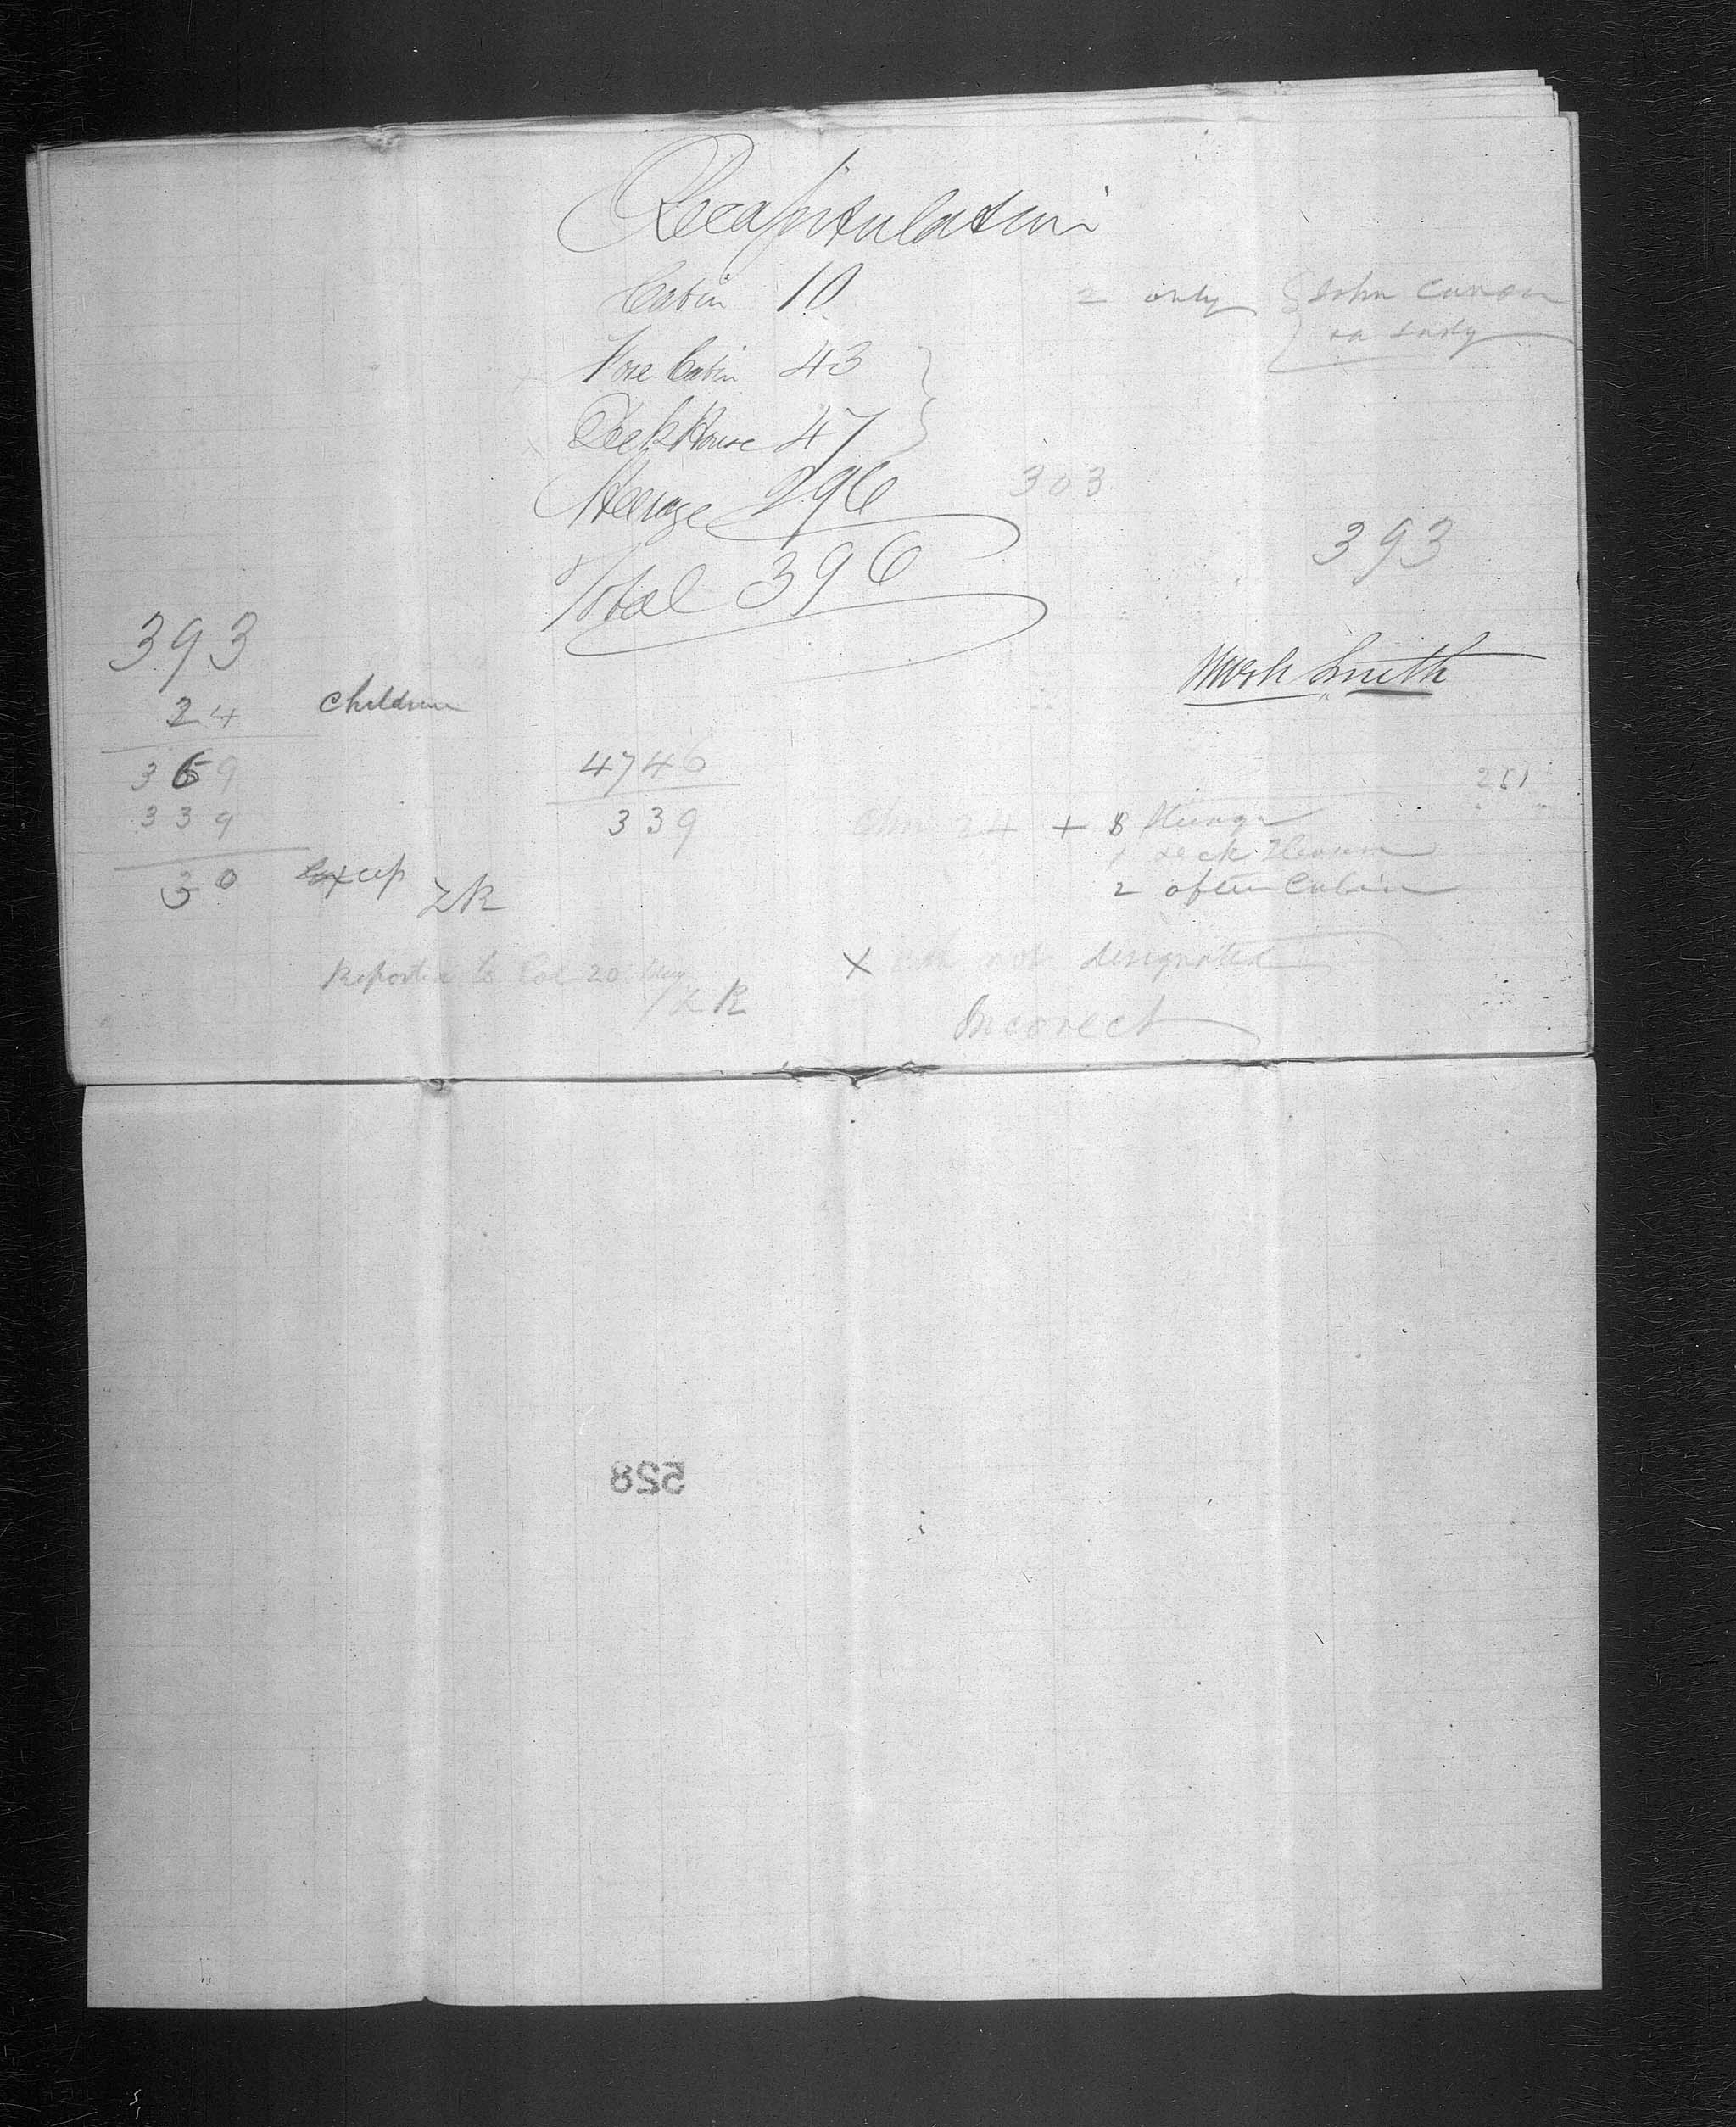 Recapitulation
Cabin 10
2 only
Fore Cabin 43
Deck House 47
Steerage 296
303
Total 396
393
393
24 children
Mark Smith
369
339
30 Excep
ZR
4746
339
251
24 + 8 Steerage
1 Deck House
2 after Cabin
Reported to Col 20
ZR
X not designated
Incorrect
528